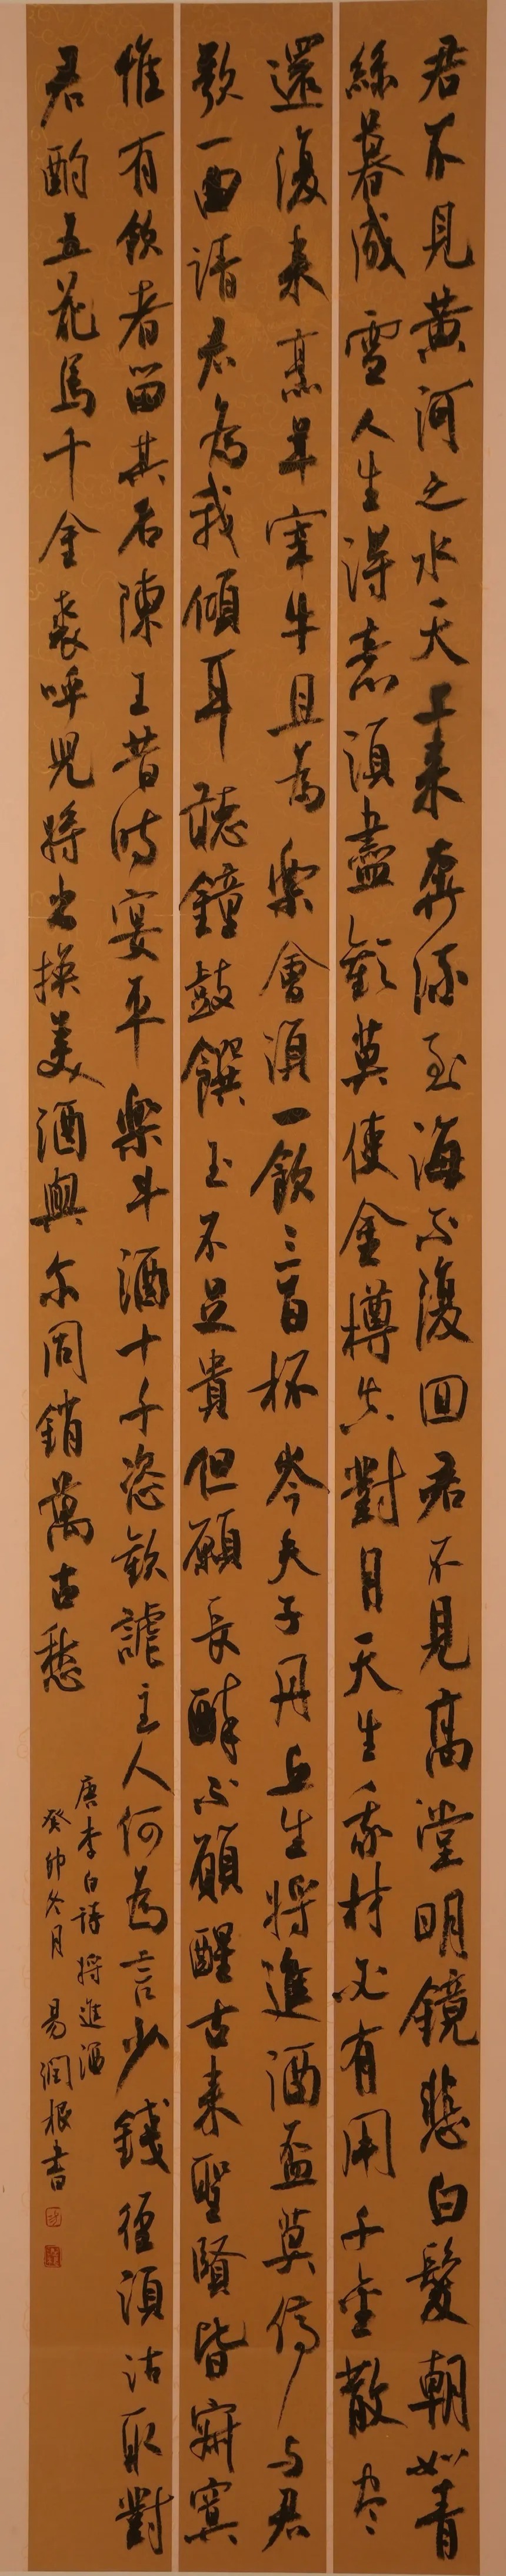 君不見黃河之水天上来奔流至海不復回君不見高堂明鏡悲白髮朝如青
絲暮成雪人生得意須盡歡莫使金樽空對月天生我材必有用千金散尽
還復来烹羊宰牛且為樂會須一飲三百杯岑夫子丹丘生将進酒盃莫停与君
歌一曲請君為我傾耳聽鐘鼓饌玉不足貴但願長醉不願醒古来聖賢皆寂寞
惟有飲者留其名陳王昔時宴平樂斗酒十千恣歡謔主人何為言少錢徑須沽取對
君酌五花馬千金裘呼児将出換美酒與尔同銷萬古愁
唐李白詩将進酒
癸卯冬月 易潤根書